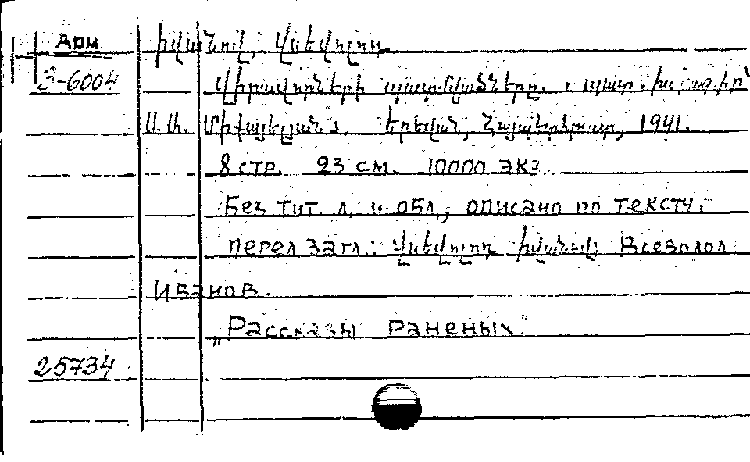 Арм
3-6004
Իվանով, Վսեվոլոդ
Վիրավորների պատմվածները.
Ս. Մ. Երևան, Հայպետհրատ, 1941.
8 стр. 23 см. 10000 экз.
Без тит. л. и обл., описано по тексту.
Перел загл.: Վսեվոլոդ Իվանով Всеволод
Иванов.
„Рассказы раненых"
25734